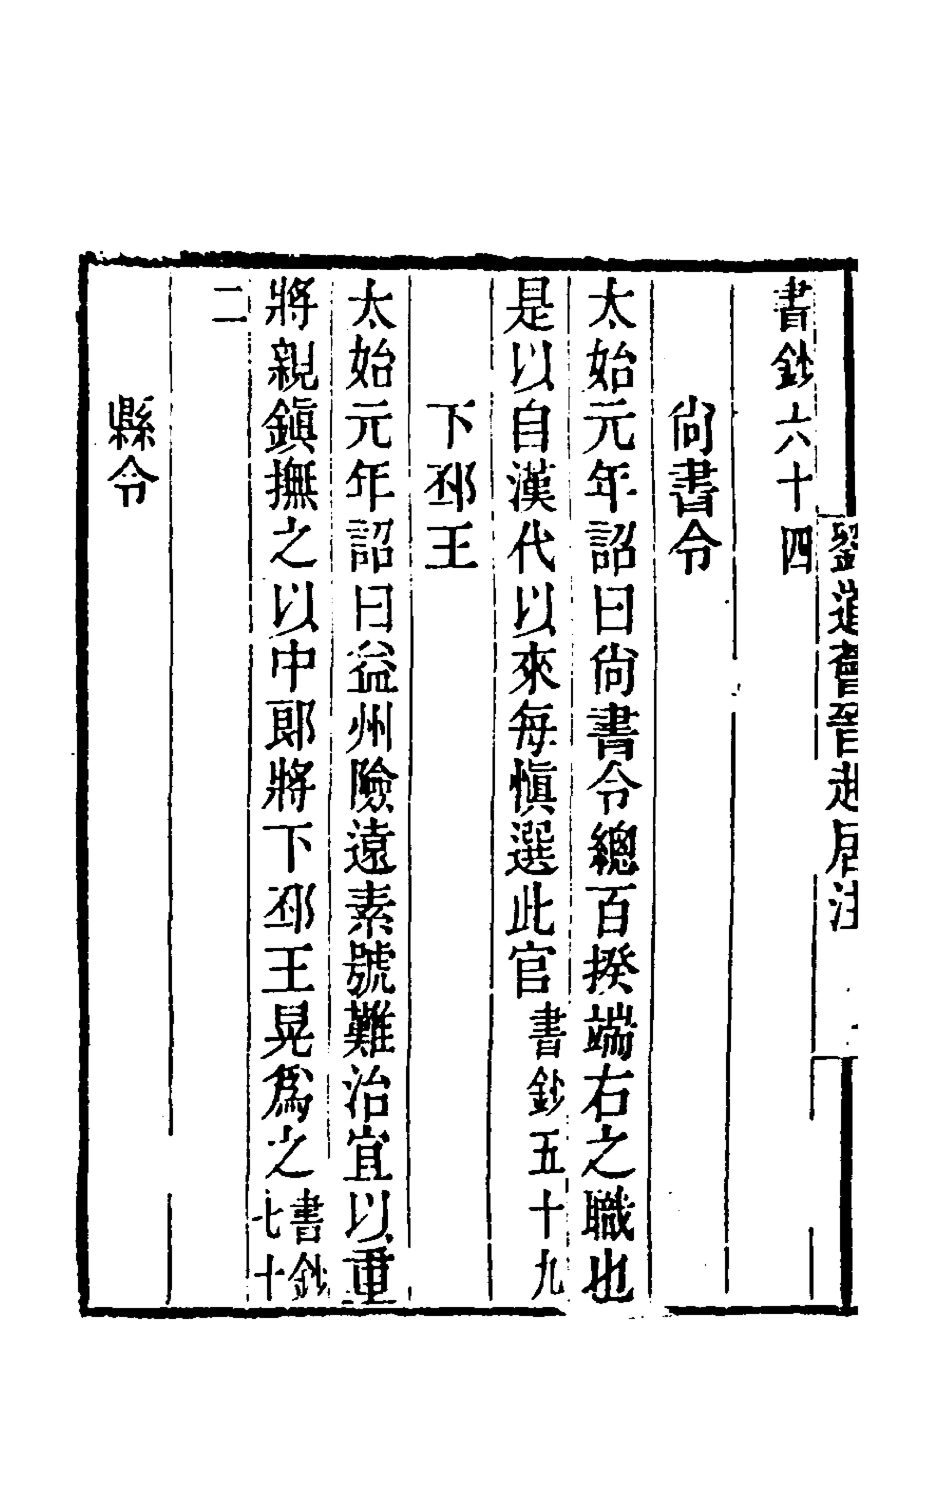 劉道薈晉起居注
書鈔六十四
尙書令
太始元年詔曰尙書令總百揆端右之職也
是以自漢代以來每愼選此官書鈔五十九
下邳王
太始元年詔曰益州險遠素號難治宜以重
將親鎭撫之以中郞將下邳王晃爲之書鈔七十
二
縣令